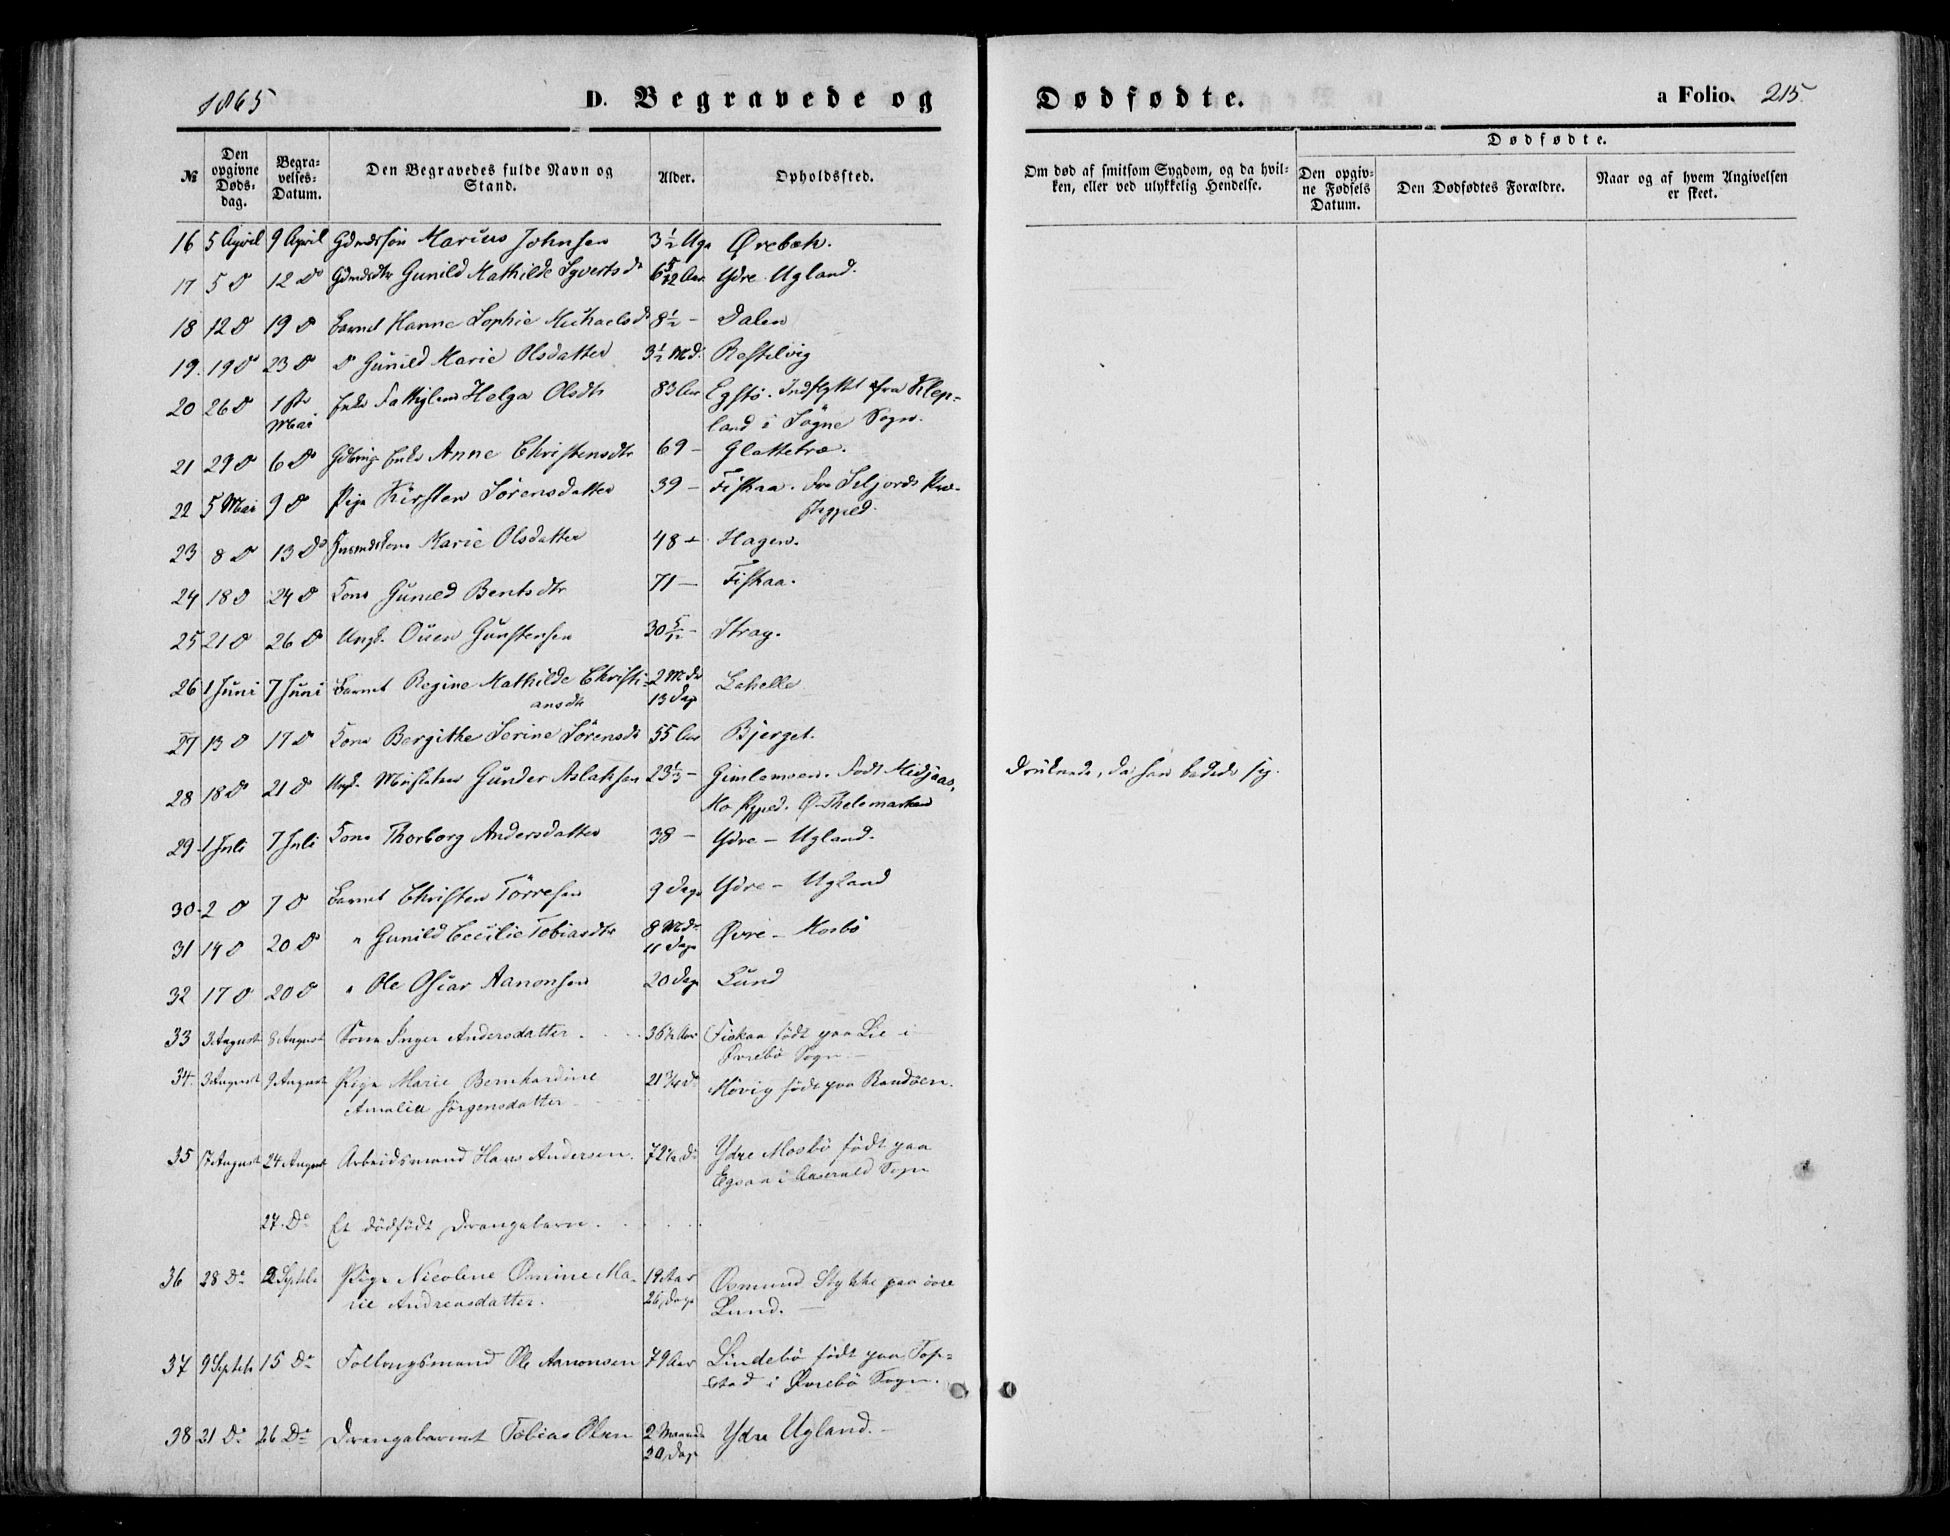 1865 D. Begravede og Dødfødte. a Folio. 215.
№ | Den opgivne Døds-dag. | Begra-velses-Datum. | Den Begravedes fulde Navn og Stand. | Alder. | Opholdssted. | Om død af smitsom Sygdom, og da hvil-ken, eller ved ulykkelig Hendelse. | Dødfødte. | Den opgiv-ne Fødsels Datum. | Den Dødfødtes Forældre. | Naar og af hvem Angivelsen er skeet.
16 5 April 9 April Gdmdssøn Marius Johnsen 3 1/2 Uge Ørebæk.
17 5 D 12 Do Gdmdsdtr Gunild Mathilde Syvertsdr 6 5/12 Aar Ydre Ugland.
18 12 D 19 D Barnet Hanne Sophie Michaelsdr 8 1/2 – Dalen
19. 19 Do 23 D D Gunild Marie Olsdatter 3 1/2 Md. Restelvig
20 26 D 1ste Enke Fattiglem Helga Olsdtr 83 Aar Egstø. Indflyttet fra Klep-
Mai land i Søgne Sogn.
21 29 D 6 D Enke Anne Christensdtr 69 – Glattetræ.
22 5 Mai 9 D Pige Kirsten Sørensdatter 39 – Fiskaa. Fra Siljords Præ-
stegjeld.
23 8 D 13 Do Husmdskone Marie Olsdatter 48 – Hagen.
24 18 D 24 D Kone Gunild Bentsdtr 71 – Fiskaa.
25 21 D 26 D Ungk. Ouen Gunstensen 30 5/12 – Stray.
26 1 Juni 7 Juni Barnet Regine Mathilde Christi- 2 Mdr
ansdtr 13 Dage Lahelle
27 13 D 17 D Kone Bergithe Serine Sørensdr 55 Aar Bjerget.
28 18 D 21 D Ungk. Gunder Aslaksen 23 1/3 – Gimlemoen. Født Midjaas, Druknede, da han badede sig.
Mo Pgjeld. Ø Thelemarken
29 1 Juli 7 Juli Kone Thorborg Andersdatter 38 – Ydre – Ugland.
30 2 D 7 D Barnet Christen Tørresen 9 Dage Ydre – Ugland
31 14 D 20 D " Gunild Cecilie Tobiasdtr 8 Mdr
11 Dage Øvre – Mosbø
32 17 D 20 D " Ole Oscar Aanonsen 20 Dage Lund
33 3 August 8 August Kone Inger Andersdatter. 36 1/2 Aar Fiskaa født paa Lie i
Øvrebø Sogn. –
34. 3 August 9 August Pige Marie Bernhardine 21 3/4 Do Møvig født paa Randøen.
Amalia Jørgensdatter
35 17 August 24 August Arbeidsmand Hans Andersen. 72 1/2 Do Ydre Mosbø født paa
Egsaa i Aaserald Sogn
27. Do Et dødfødt Drengebarn.
36 28 Do 2 Septbr Pige Nicoline Omine Ma- 19 Aar Osmund Stykke paa øvre
rie Andreasdatter. 26 Dage Lund. –
37 9 Septbr 15 Do Follougsmand Ole Aanonsen 79 Aar Lindebø født paa Top-
stad i Øvrebø Sogn.
38 21 Do 26 Do Drengebarnet Tobias Olsen 2 Maaneder Ydre Ugland. –
20 Dage